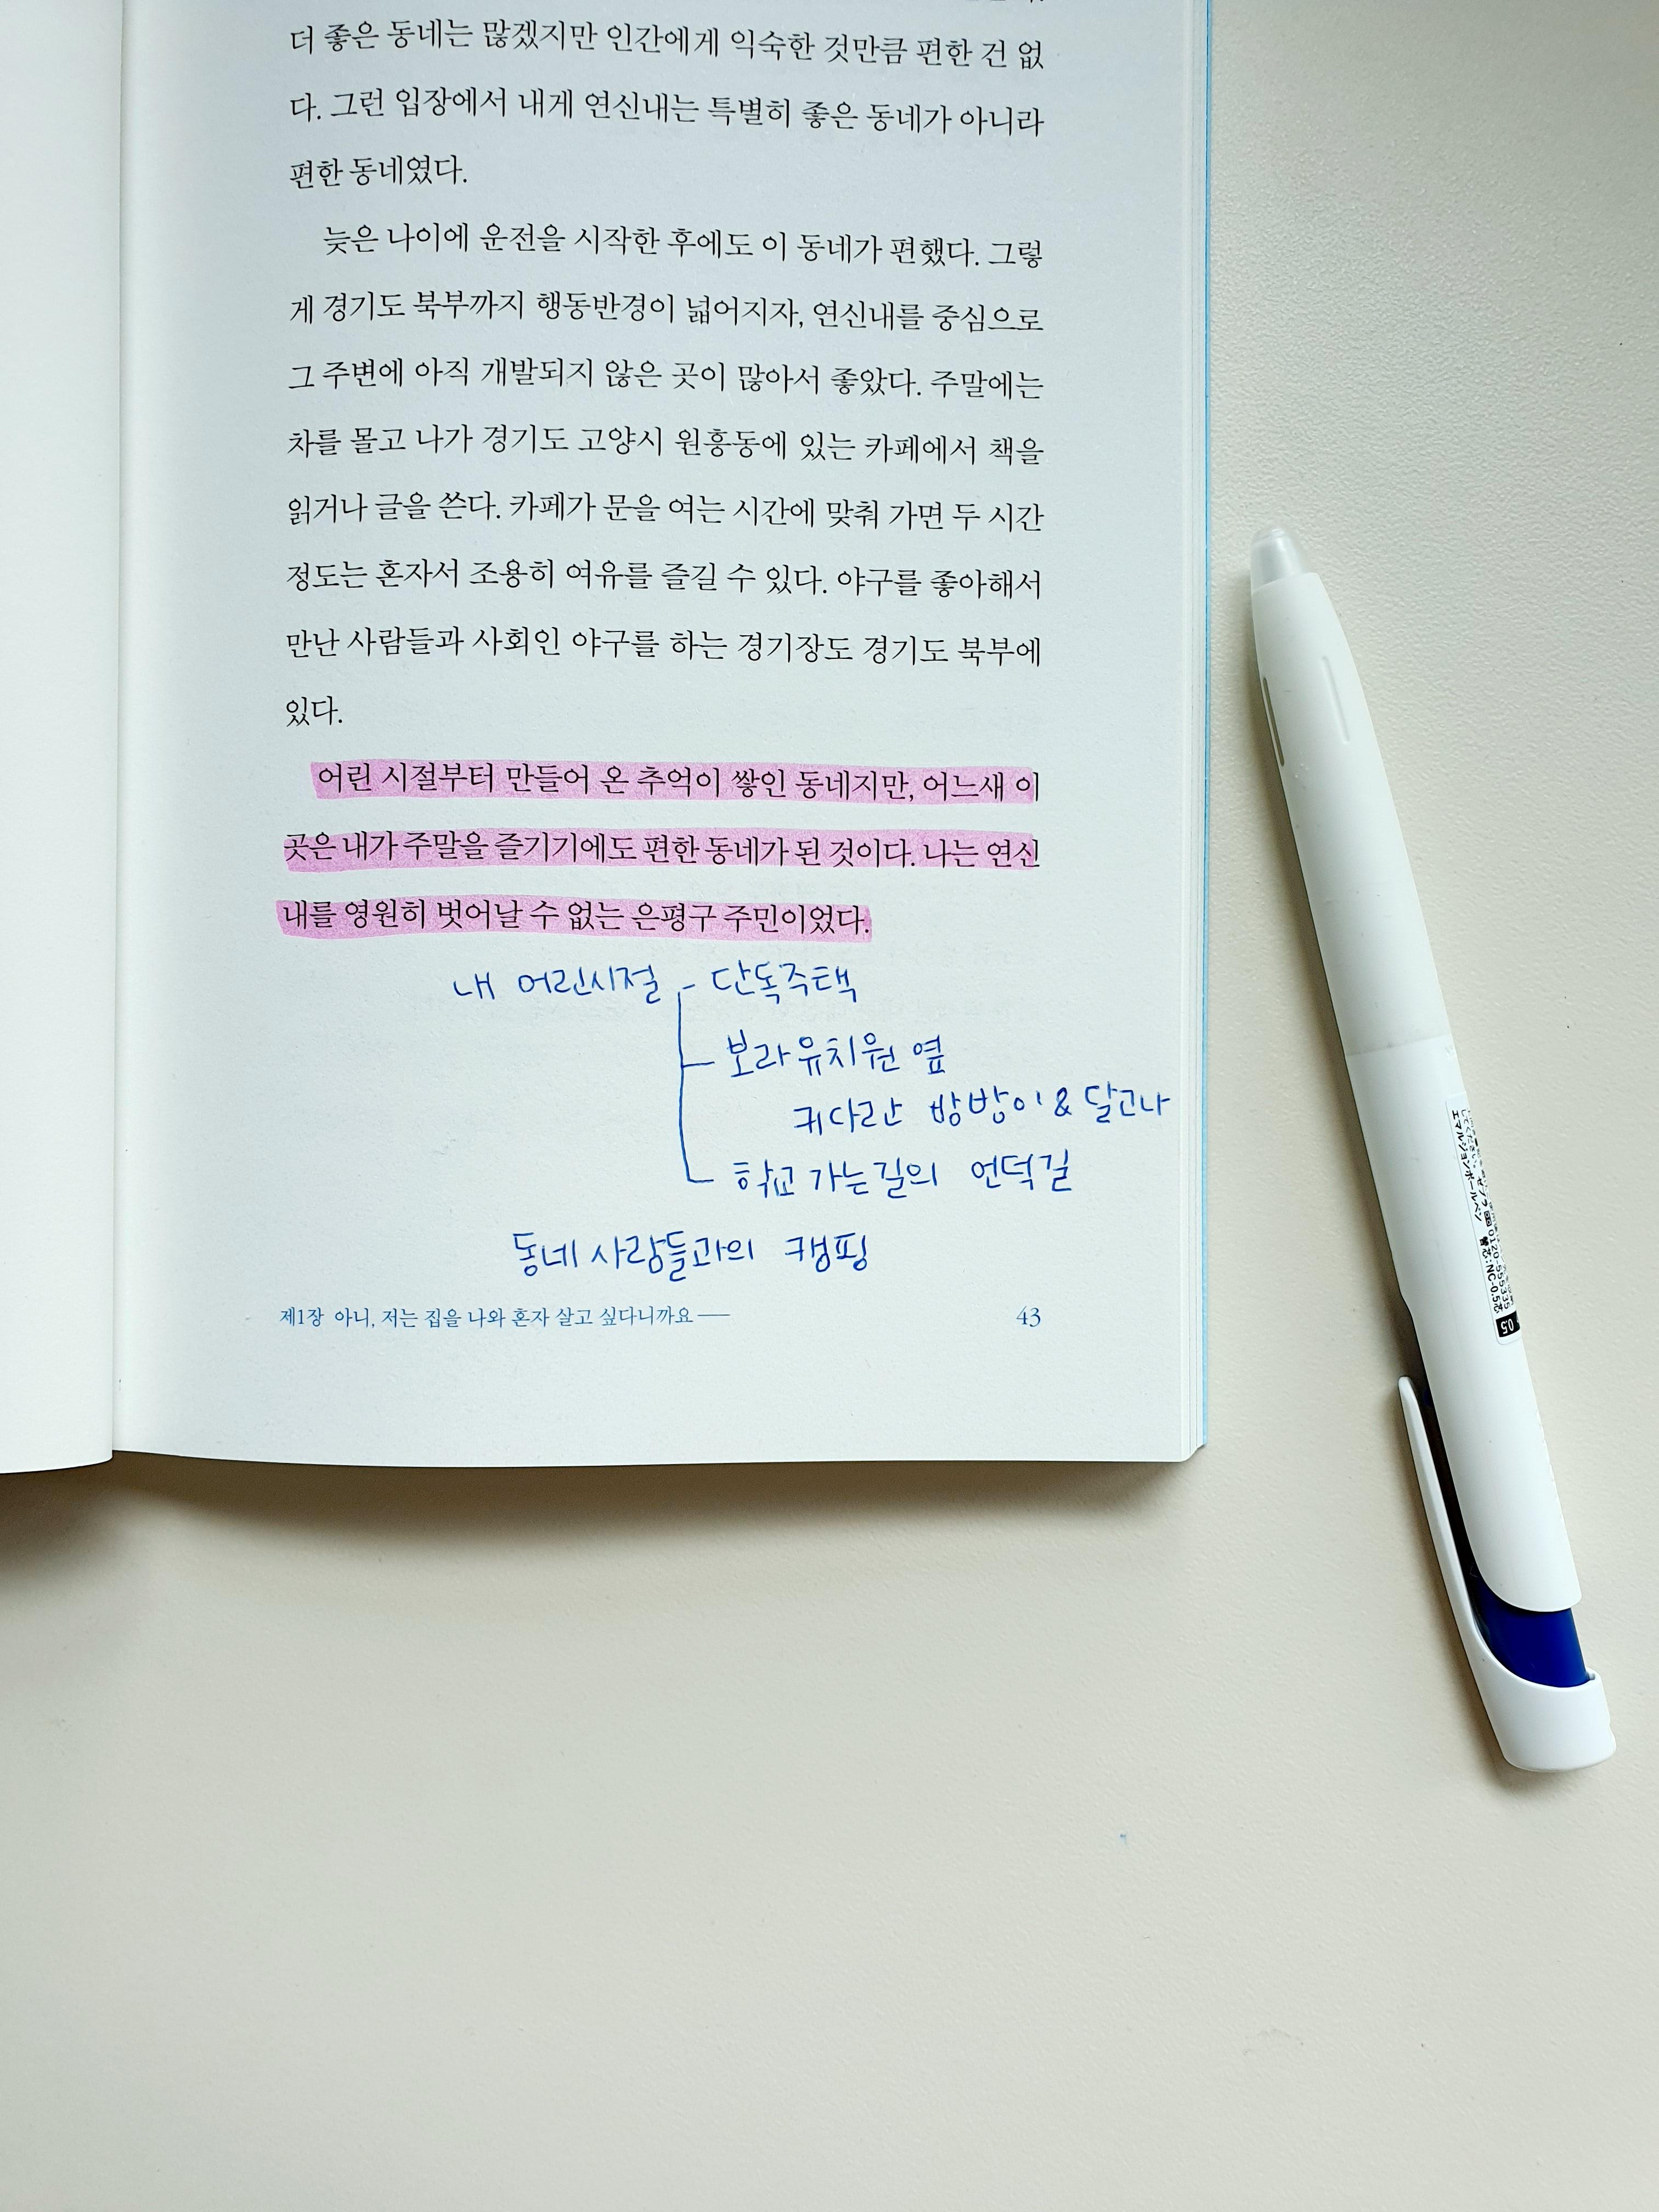 더 좋은 동네는 많겠지만 인간에게 익숙한 것만큼 편한 건 없
다. 그런 입장에서 내게 연신내는 특별히 좋은 동네가 아니라
편한 동네였다.
늦은 나이에 운전을 시작한 후에도 이 동네가 편했다. 그렇
게 경기도 북부까지 행동반경이 넓어지자, 연신내를 중심으로
그 주변에 아직 개발되지 않은 곳이 많아서 좋았다. 주말에는
차를 몰고 나가 경기도 고양시 원흥동에 있는 카페에서 책을
읽거나 글을 쓴다. 카페가 문을 여는 시간에 맞춰 가면 두 시간
정도는 혼자서 조용히 여유를 즐길 수 있다. 야구를 좋아해서
만난 사람들과 사회인 야구를 하는 경기장도 경기도 북부에
있다.
어린 시절부터 만들어 온 추억이 쌓인 동네지만, 어느새 이
곳은 내가 주말을 즐기기에도 편한 동네가 된 것이다. 나는 연신
내를 영원히 벗어날 수 없는 은평구 주민이었다.
내 어린시절 - 단독주택
보라유치원 옆
커다란 방방이 & 달고나
학교 가는길의 언덕길
동네 사람들과의 캠핑
제1장 아니, 저는 집을 나와 혼자 살고 싶다니까요 —— 43
エマルジョンボールペン 替芯:NC-0.5芯
0120-555335
0.5